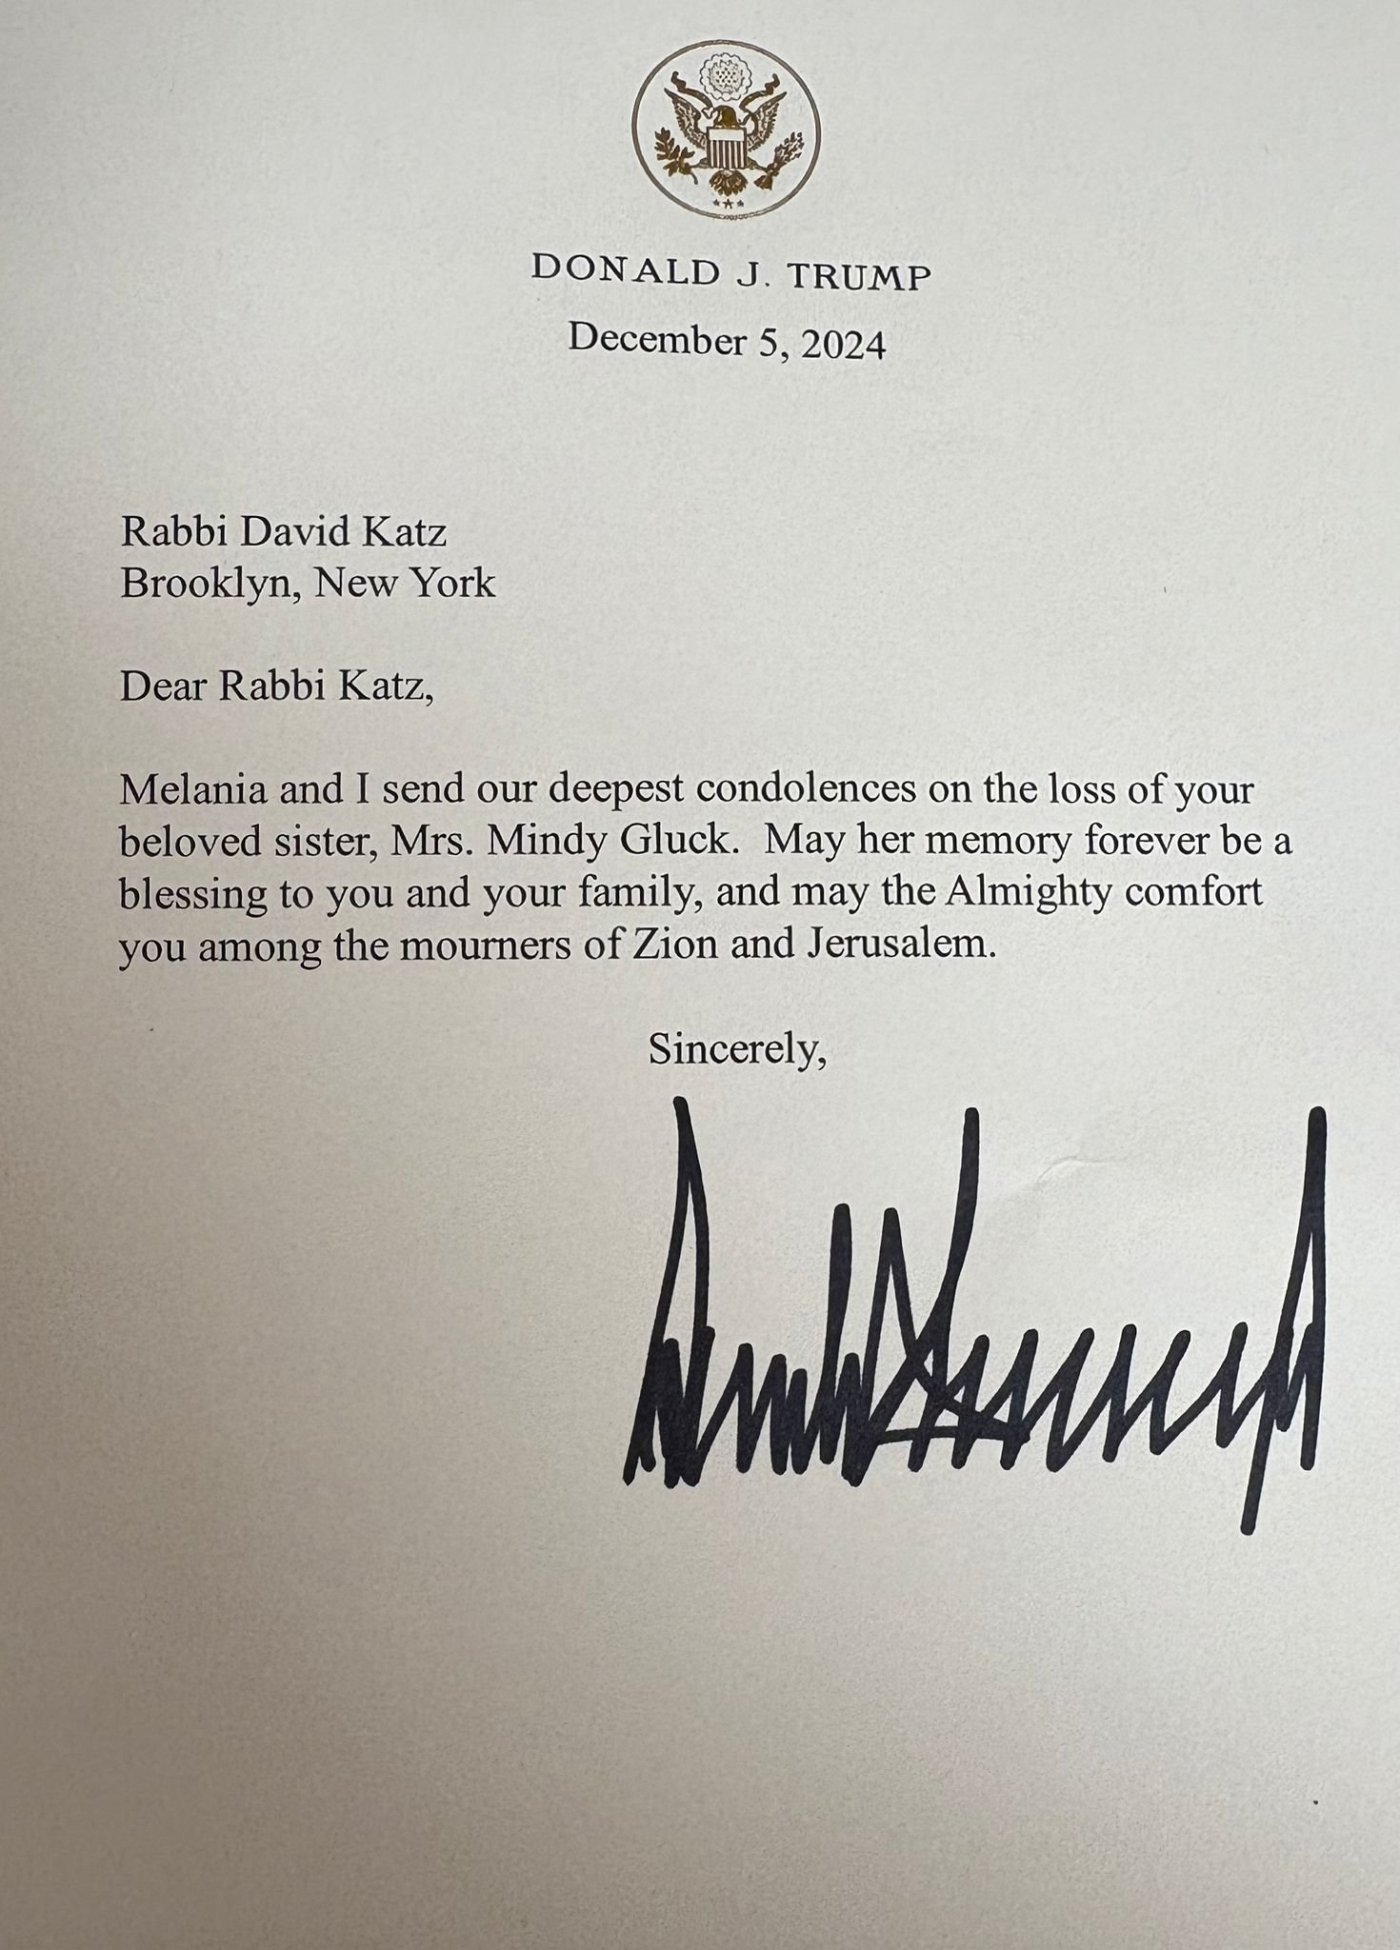 DONALD J. TRUMP
December 5, 2024
Rabbi David Katz
Brooklyn, New York
Dear Rabbi Katz,
Melania and I send our deepest condolences on the loss of your
beloved sister, Mrs. Mindy Gluck.  May her memory forever be a
blessing to you and your family, and may the Almighty comfort
you among the mourners of Zion and Jerusalem.
Sincerely,